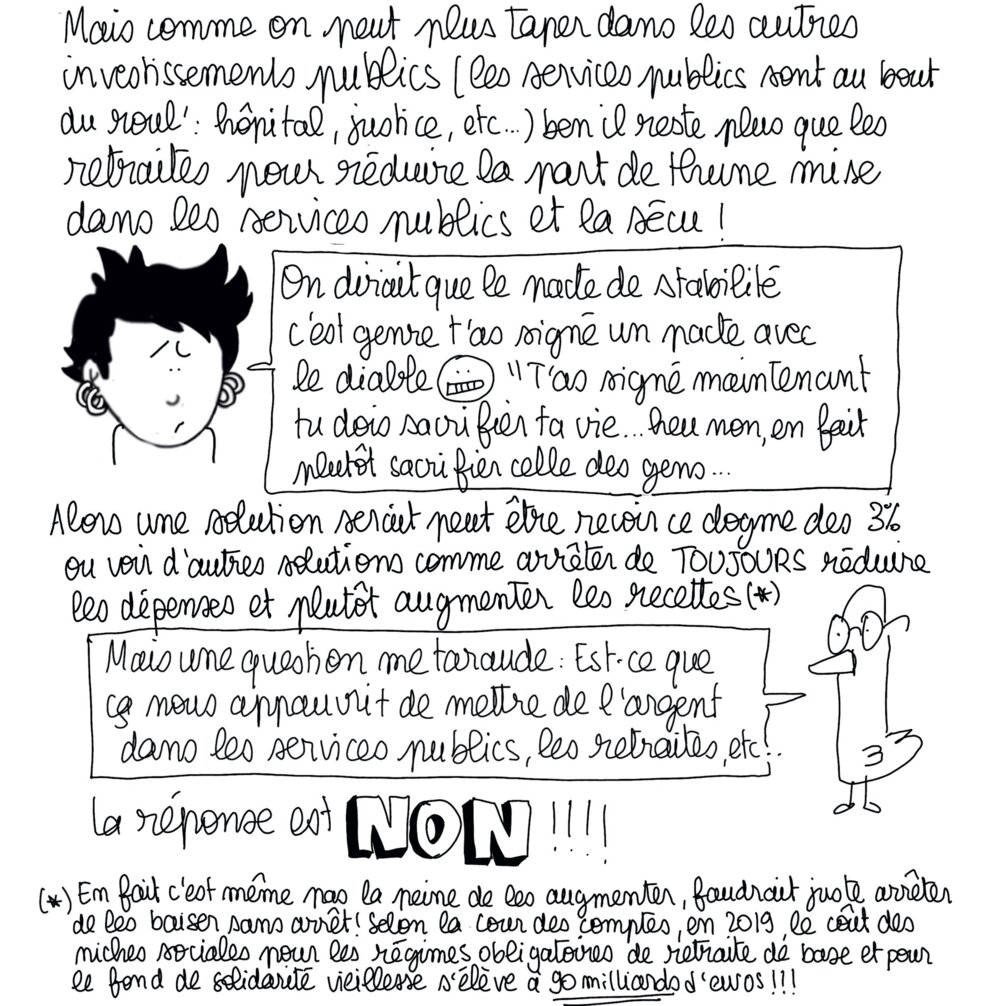 Mais comme on peut plus taper dans les autres
investissements publics (les services publics sont au bout
du roul' : hôpital, justice, etc...) ben il reste plus que les
retraites pour réduire la part de thune mise
dans les services publics et la sécu !
On dirait que le pacte de stabilité
c'est genre t'as signé un pacte avec
le diable "T'as signé maintenant
tu dois sacrifier ta vie... heu non, en fait
plutôt sacrifier celle des gens...
Alors une solution serait peut être revoir ce dogme des 3%
ou voir d'autres solutions comme arrêter de TOUJOURS réduire
les dépenses et plutôt augmenter les recettes (*)
Mais une question me taraude : Est-ce que
ça nous appauvrit de mettre de l'argent
dans les services publics, les retraites, etc?.
la réponse est NON !!!!
(*) En fait c'est même pas la peine de les augmenter, faudrait juste arrêter
de les baiser sans arrêt ! Selon la cour des comptes, en 2019, le coût des
niches sociales pour les régimes obligatoires de retraite de base et pour
le fond de solidarité vieillesse s'élève à 90 milliards d'euros !!!